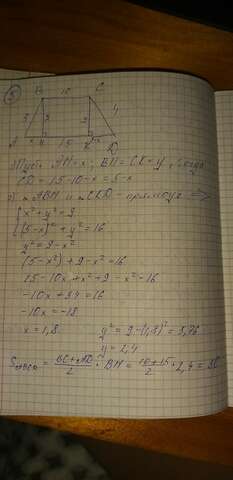 5
B 10 C
3 y y 4
A x H 15 K 5-x D
1) Пусть AH = x; BH = CK = y, тогда
KD = 15 - 10 - x = 5 - x
2) ABH и CKD - прямоуг. =>
{ x² + y² = 9
{ (5-x)² + y² = 16
y² = 9 - x²
(5-x)² + 9 - x² = 16
25 - 10x + x² + 9 - x² = 16
-10x + 34 = 16
-10x = -18
x = 1,8 y² = 9 - (1,8)² = 5,76
y = 2,4
S_ABCD = BC+AD/2 · BH = 10+15/2 · 2,4 = 30